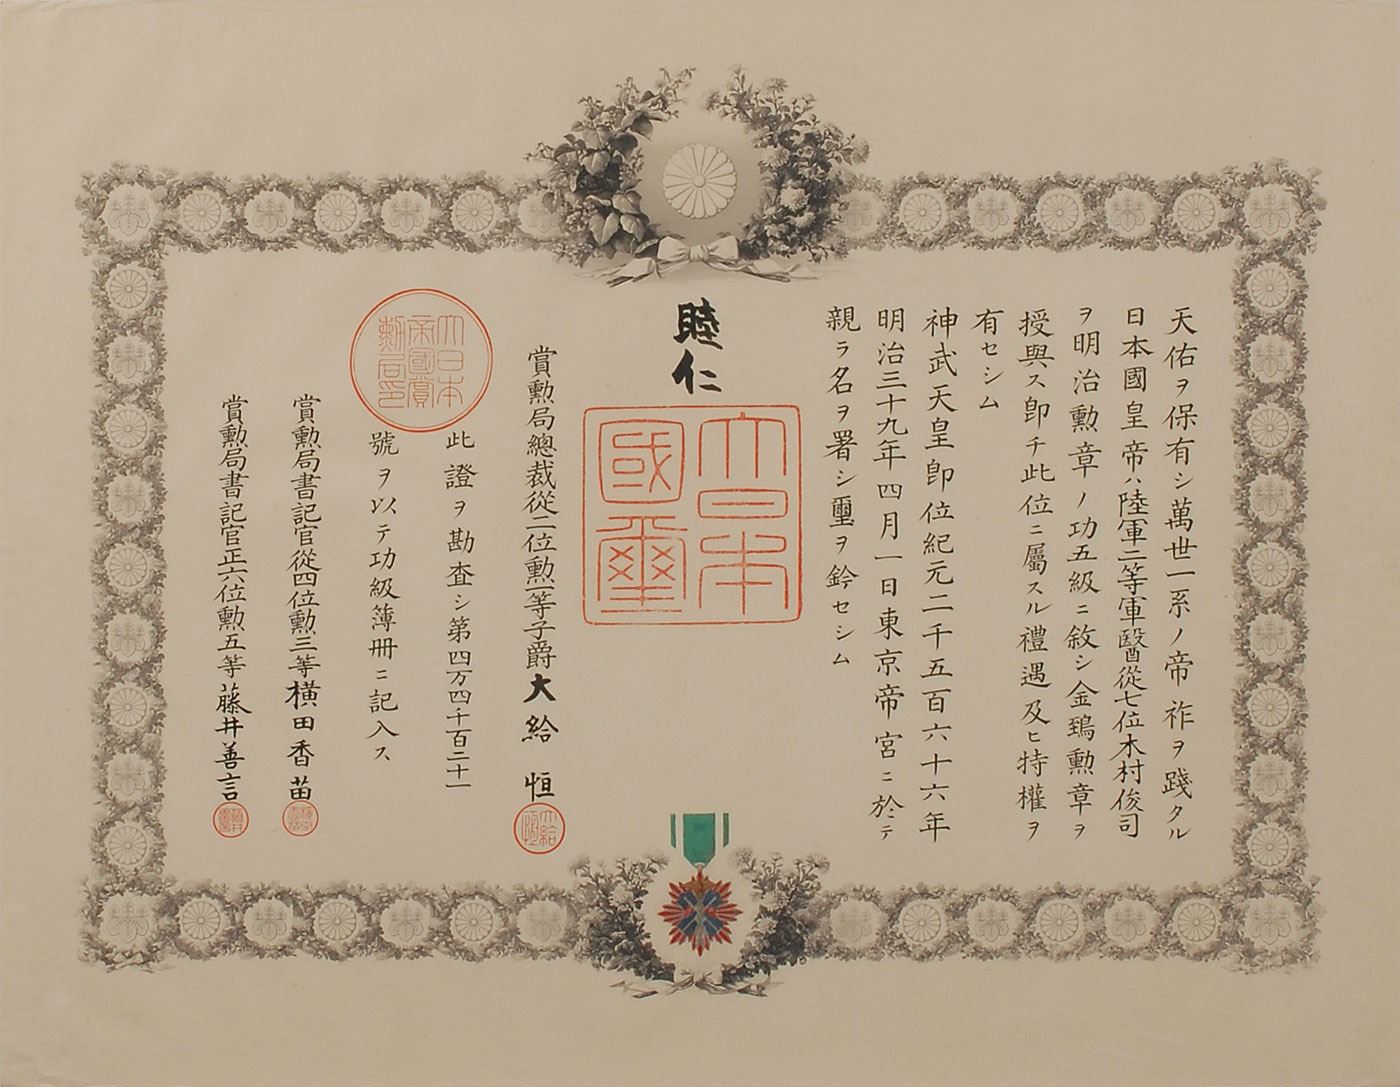 天佑ヲ保有シ萬世一系ノ帝祚ヲ踐タル
日本國皇帝ハ陸軍二等軍醫從七位木村俊司
ヲ明治勲章ノ功五級ニ敘シ金鵄勲章ヲ
授與ス卽チ此位ニ屬スル禮遇及ヒ特權ヲ
有セシム
神武天皇卽位紀元二千五百六十六年
明治三十九年四月一日東京帝宮ニ於テ
親ラ名ヲ署シ璽ヲ鈐セシム
睦仁
大日本
國璽
賞勲局總裁從二位勲一等子爵大給恒
大日本
帝國賞
勲局印
此證ヲ勘査シ第四万四千百二十一
號ヲ以テ功級簿冊ニ記入ス
賞勲局書記官從四位勲三等横田香苗
賞勲局書記官正六位勲五等藤井善言